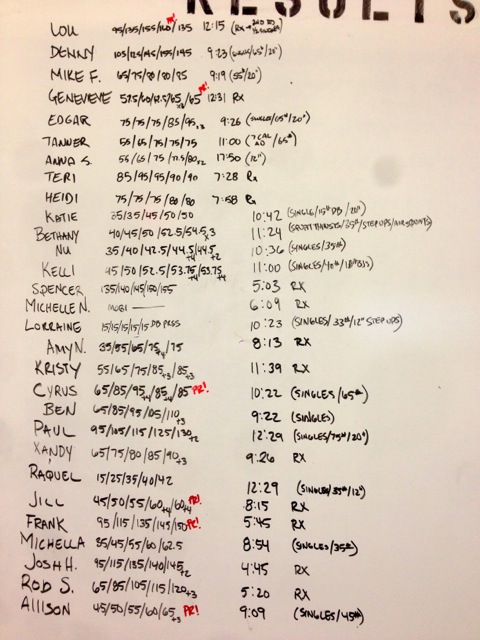 RESULTS
LOU 95/135/155/160/135 PR! 12:15 (RX →
DENNY 105/125/145/155/145 9:23 (SINGLES/65#/20")
MIKE F. 65/75/80/80/85 9:19 (55#/20")
GENEVIEVE 57.5/60/62.5/65/65 PR! 12:31 RX
EDGAR 75/75/75/85/95+3 9:26 (SINGLES/65#/20")
TANNER 55/65/75/75/75 11:00 (/65#)
ANNA S. 55/65/75/77.5/80+2 17:50 (12")
TERI 85/95/95/90/90 7:28 Rx
HEIDI 75/75/75/80/80 7:58 Rx
KATIE 35/35/45/50/50 10:42 (SINGLE/15# DB/20")
BETHANY 40/45/50/52.5/54.5x3 11:24 (SPLIT THRUSTS/35#/STEP UPS/AIR SQUATS)
NU 35/40/42.5/44.5+4/44.5+2 10:36 (SINGLES/35#)
KELLI 45/50/52.5/53.75+4/53.75+4 11:00 (SINGLES/40#/)
SPENCER 135/140/145/150/155 5:03 RX
MICHELLE N. MOBI — 6:09 RX
LORRAINE 15/15/15/15/15 DB PRESS 10:23 (SINGLES/33#/12" STEP UPS)
AMY N. 35/55/65/75+4/75 8:13 RX
KRISTY 55/65/75/85+3/85+3 11:39 RX
CYRUS 65/85/95+4/85+4/85 PR! 10:22 (SINGLES/65#)
BEN 65/85/95/105/110+3 9:22 (SINGLES)
PAUL 95/105/115/125/130+2 12:29 (SINGLES/75#/20")
XANDY 65/75/80/85/90+3 9:26 RX
RAQUEL 15/25/35/40/42 12:29 (SINGLES/35#/12")
JILL 45/50/55/60+4/60+4 PR! 8:15 RX
FRANK 95/115/135/145/150 PR! 5:45 RX
MICHELLA 35/45/55/60/62.5 8:54 (SINGLES/35#)
JOSH H. 95/115/135/140/145+2 4:45 RX
ROB S. 65/85/105/115/120+3 5:20 RX
AllISON 45/50/55/60/65+3 PR! 9:09 (SINGLES/45#)